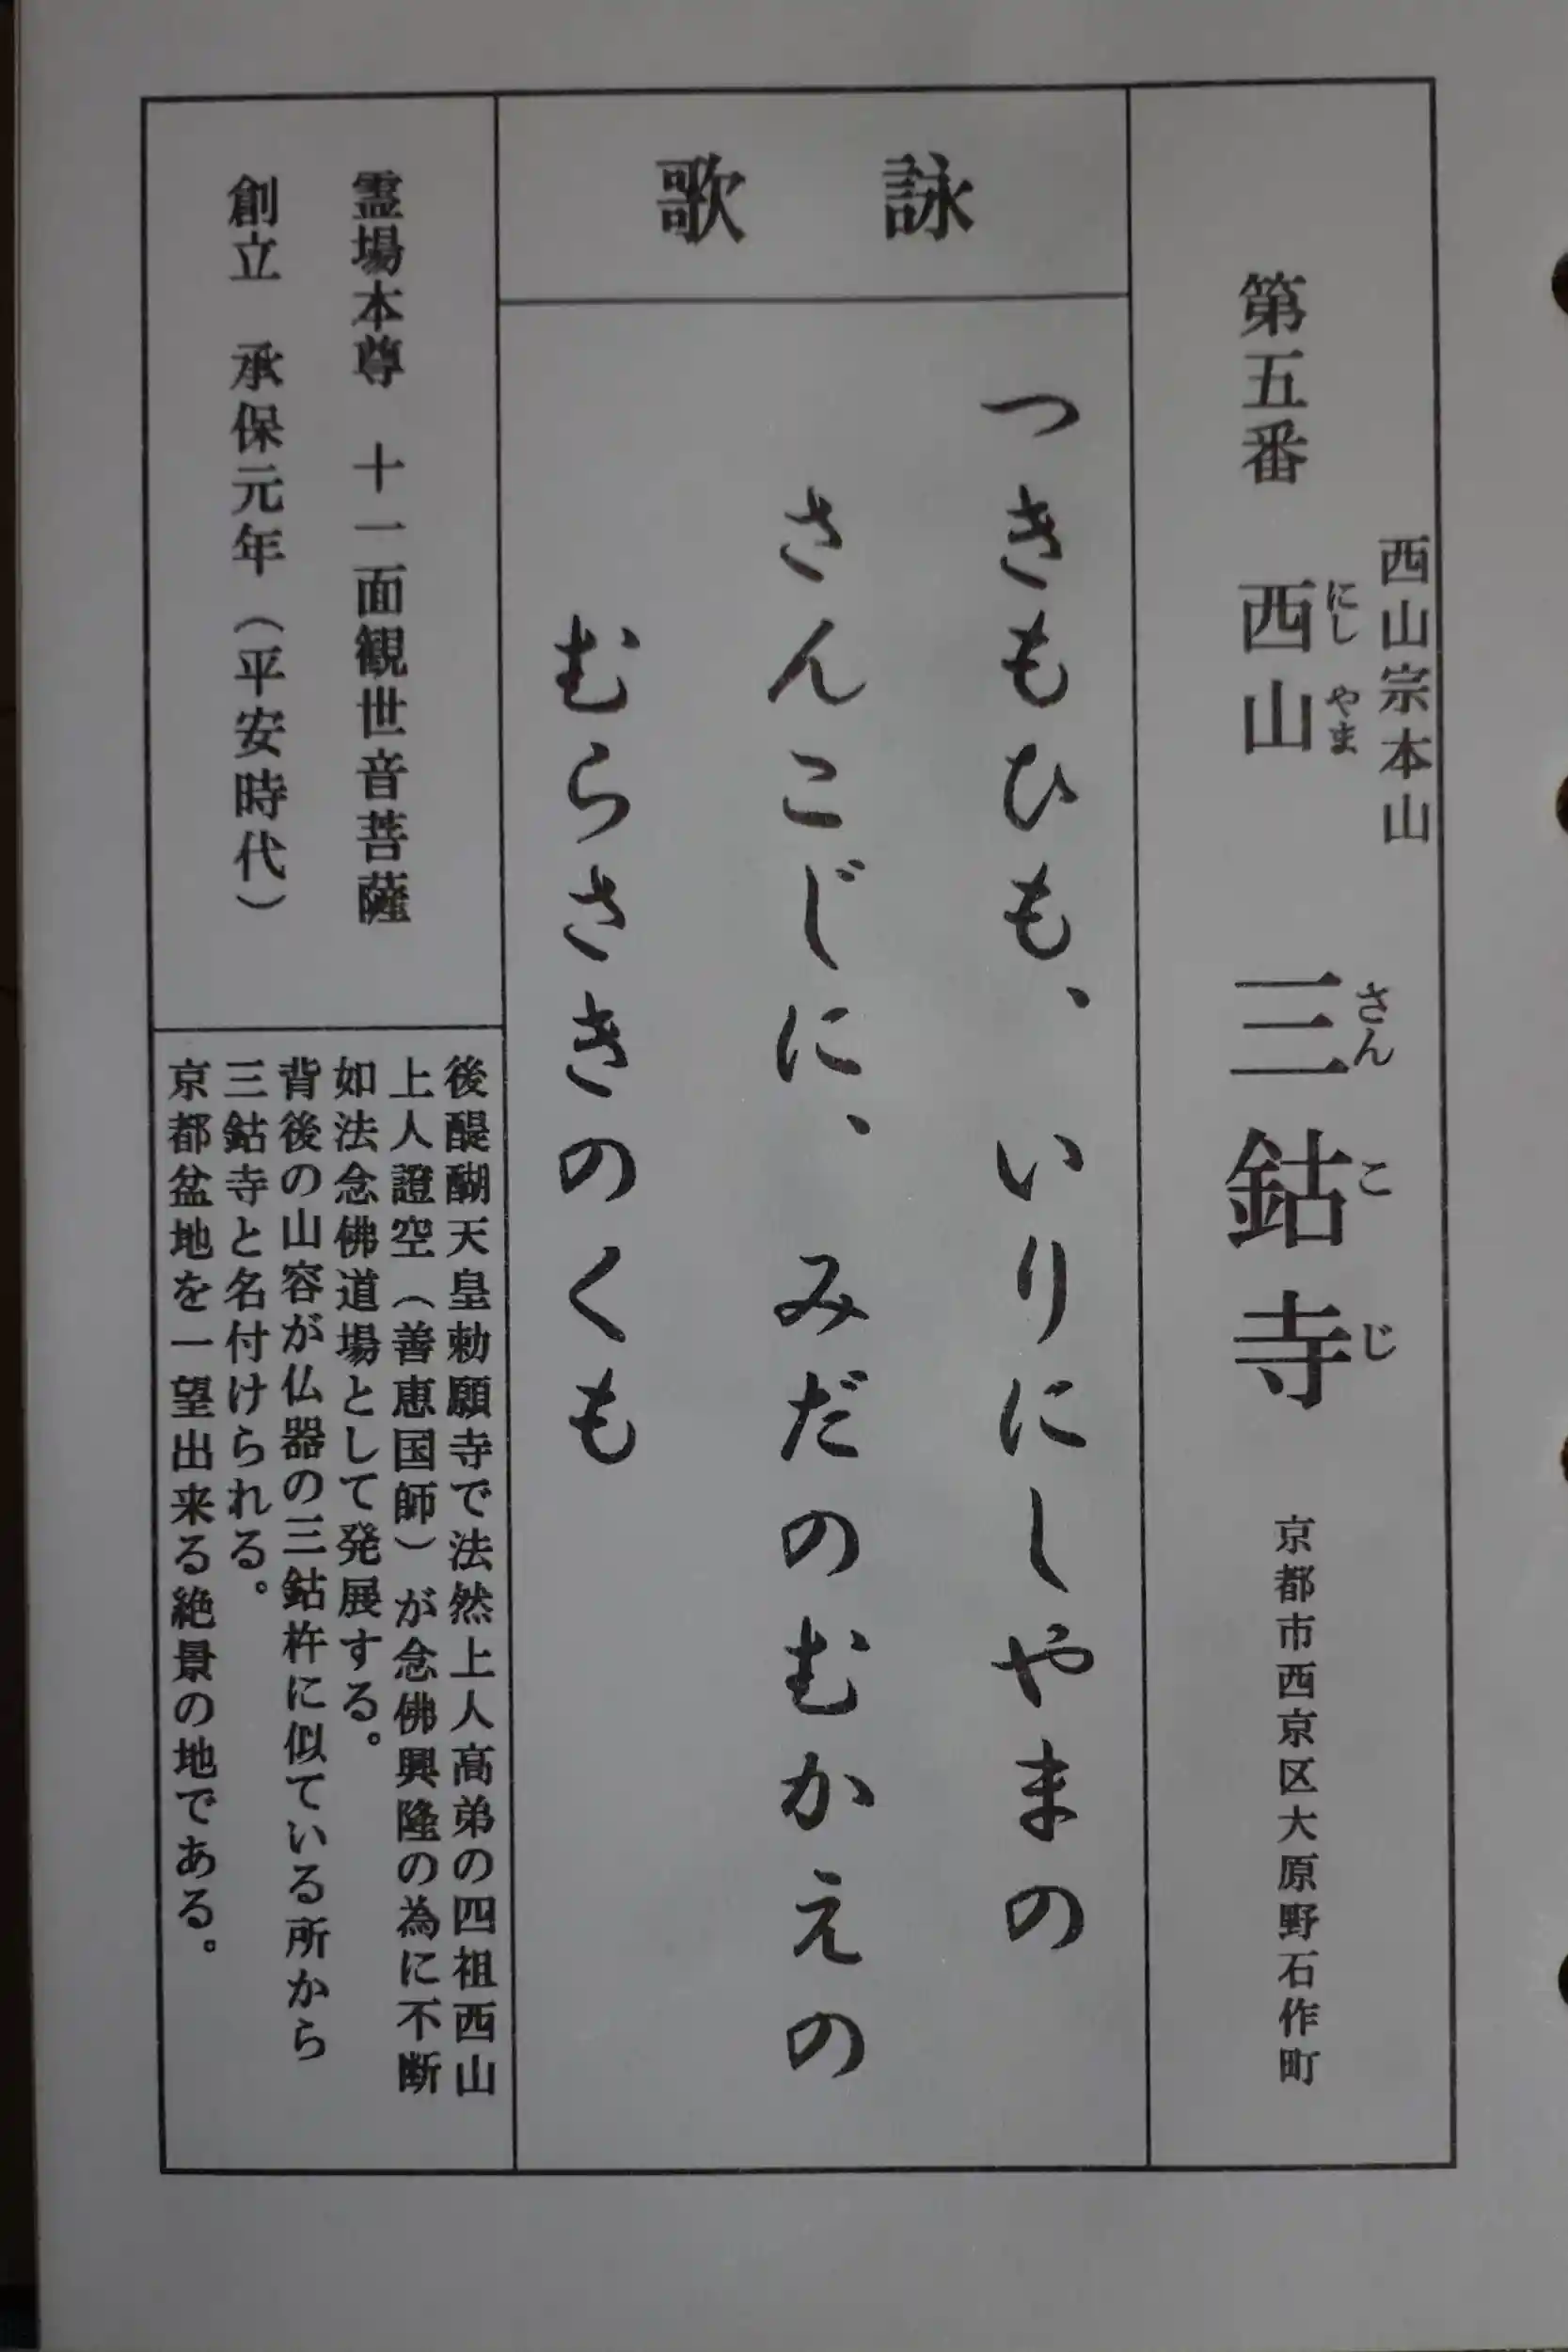 西山宗本山
第五番 西山 三鈷寺 京都市西京区大原野石作町
にし やま さん こ じ
詠歌
つきもひも、いりにしやまの
さんこじに、みだのむかえの
むらさきのくも
霊場本尊 十一面観世音菩薩
創立 承保元年(平安時代)
後醍醐天皇勅願寺で法然上人高弟の四祖西山
上人證空(善恵国師)が念佛興隆の為に不断
如法念佛道場として発展する。
背後の山容が仏器の三鈷杵に似ている所から
三鈷寺と名付けられる。
京都盆地を一望出来る絶景の地である。